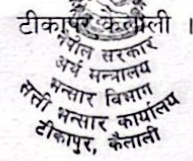 टीकापुर कैलाली ।
नेपाल सरकार
अर्थ मन्त्रालय
भन्सार विभाग
सत्ती भन्सार कार्यालय
टीकापुर, कैलाली